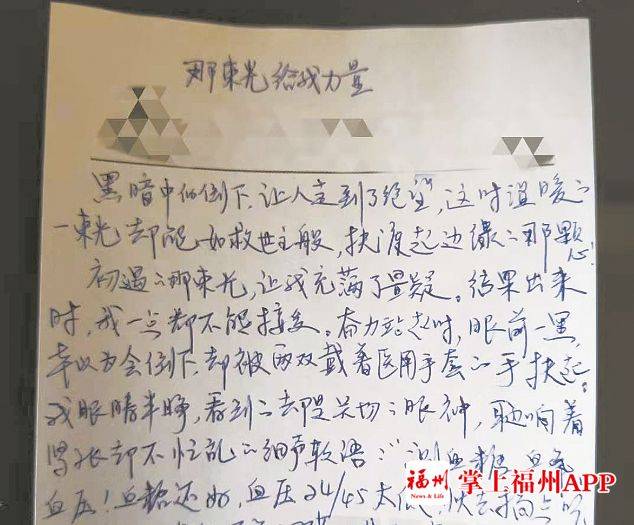 那束光给我力量
黑暗中的倒下,让人走到了绝望,这时温暖的
一束光却能如救世主般,扶渡起边缘的那颗心!
初遇的那束光,让我充满了疑。结果出来
时,我一点都不能接受。奋力站起时,眼前一黑,
本以为会倒下却被两双戴着医用手套的手扶起。
我眼睛半睁,看到的却是关切的眼神,耳响着
紧张却不忙乱的细声软语:“测血糖、血氧
血压!血糖还好,血压24/45太低,快去
福州 News & Life 掌上福州APP